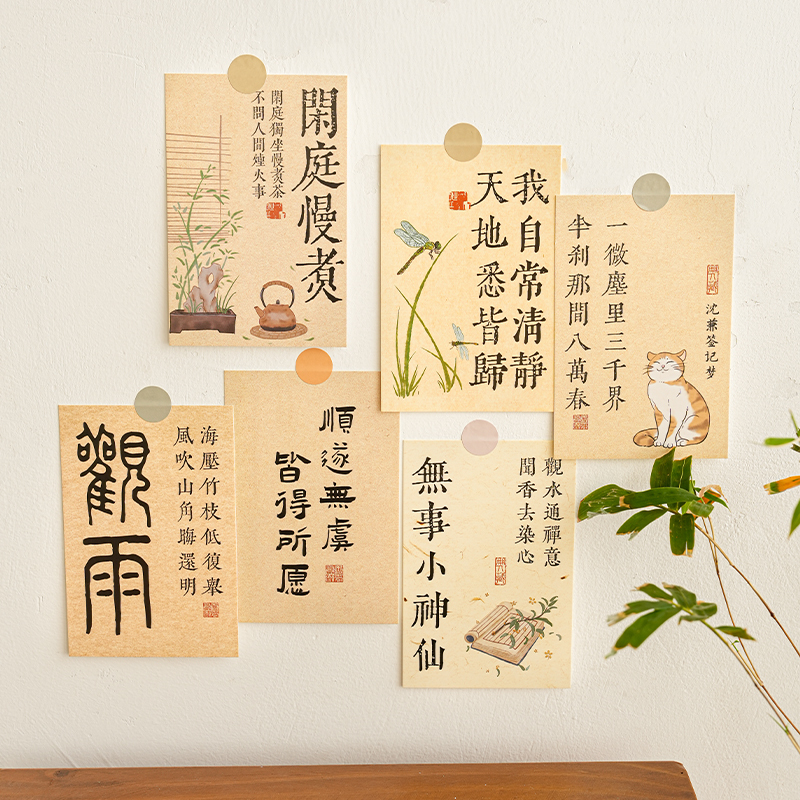 閑庭慢煮
閑庭獨坐慢煮茶
不問人間煙火事
我自常清靜
天地悉皆歸
一微塵里三千界
半刹那間八萬春
沈蒹签记梦
觀雨
海壓竹枝低復舉
風吹山角晦還明
順遂無虞
皆得所愿
觀水通禪意
聞香去染心
無事小神仙